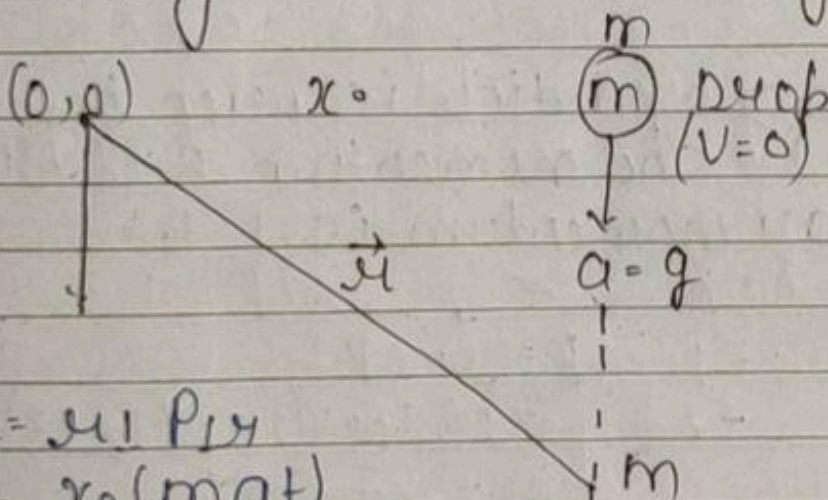 m
(0,0) x₀ m Drop
(v=0)
r⃗ a = g
= r⊥ P⊥r
x₀ (mgt) m